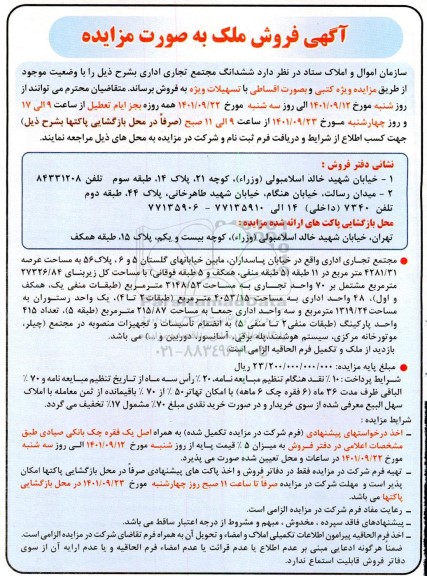 آگهی فروش ملک به صورت مزایده
سازمان اموال و املاک ستاد در نظر دارد ششدانگ مجتمع تجاری اداری بشرح ذیل را با وضعیت موجود
از طریق مزایده ویژه کتبی و بصورت اقساطی با تسهیلات ویژه به فروش برساند. متقاضیان محترم می توانند از
روز شنبه مورخ ۱۴۰۱/۰۹/۱۲ الی روز سه شنبه مورخ ۱۴۰۱/۰۹/۲۲ همه روزه بجز ایام تعطیل از ساعت ۹ الی ۱۷
و روز چهارشنبه مورخ ۱۴۰۱/۰۹/۲۳ از ساعت ۹ الی ۱۱ صبح (صرفاً در محل بازگشایی پاکتها بشرح ذیل)
جهت کسب اطلاع از شرایط و دریافت فرم ثبت نام و شرکت در مزایده به محل های ذیل مراجعه نمایند.
نشانی دفتر فروش :
۱ - خیابان شهید خالد اسلامبولی (وزراء)، کوچه ۲۱، پلاک ۱۴، طبقه سوم تلفن ۸۴۳۳۱۲۰۸
۲ - میدان رسالت، خیابان هنگام، خیابان شهید طاهرخانی، پلاک ۴۴، طبقه دوم
تلفن ۷۳۴۰ (داخلی) ۱۴ الی ۷۷۱۳۵۹۱۰ - ۷۷۱۳۵۹۰۶
محل بازگشایی پاکت های ارائه شده مزایده :
تهران، خیابان شهید خالد اسلامبولی (وزراء)، کوچه بیست و یکم، پلاک ۱۵، طبقه همکف
● مجتمع تجاری اداری واقع در خیابان پاسداران، مابین خیابانهای گلستان ۵ و ۶ ، پلاک ۵۶ به مساحت عرصه
۴۲۸۱/۳۱ متر مربع در ۱۱ طبقه (۵ طبقه منفی، همکف و ۵ طبقه فوقانی) با مساحت کل زیربنای ۲۷۳۲۶/۸۴
مترمربع مشتمل بر ۷۰ واحد تجاری به مساحت ۳۱۴۸/۵۳ مترمربع (طبقات منفی یک، همکف
و اول)، ۴۸ واحد اداری به مساحت ۴۰۵۳/۱۵ مترمربع (طبقات ۲ تا ۴)، یک واحد رستوران به
مساحت ۱۳۱۹/۲۴ مترمربع و سه واحد اداری جمعا به مساحت ۲۱۵/۸۷ مترمربع (طبقه ۵)، تعداد ۴۱۵
واحد پارکینگ (طبقات منفی ۲ تا منفی ۵) به انضمام تأسیسات و تجهیزات منصوبه در مجتمع (چیلر،
موتورخانه مرکزی، سیستم هوشمند، پله برقی، آسانسور، دوربین و ...) می باشد.
بازدید از ملک و تکمیل فرم الحاقیه الزامی است.
● مبلغ پایه مزایده: ۲۳/۲۰۰/۰۰۰/۰۰۰/۰۰۰ ریال
شرایط پرداخت :۱۰٪ نقد هنگام تنظیم مبایعه نامه، ۲۰٪ رأس سه ماه از تاریخ تنظیم مبایعه نامه و ۷۰٪
الباقی ظرف مدت ۳۶ ماه (۶ فقره چک ۶ ماهه) با امکان تهاتر ۵۰٪ از ۷۰٪ باقیمانده از ثمن معامله با املاک
سهل البیع معرفی شده از سوی خریدار و در صورت خرید نقدی مبلغ ۷۰٪ مشمول ۱۷٪ تخفیف می گردد.
شرایط مزایده :
ـ اخذ درخواستهای پیشنهادی (فرم شرکت در مزایده تکمیل شده) به همراه اصل یک فقره چک بانکی صیادی طبق
مشخصات اعلامی در دفتر فروش به میزان ۵٪ قیمت پایه از روز شنبه مورخ ۱۴۰۱/۰۹/۱۲ الی روز سه شنبه
مورخ ۱۴۰۱/۰۹/۲۲ در ساعات و محل تعیین شده صورت می پذیرد.
ـ تهیه فرم شرکت در مزایده فقط در دفاتر فروش و اخذ پاکت های پیشنهادی صرفاً در محل بازگشایی پاکتها امکان
پذیر است و مهلت شرکت در مزایده صرفا تا ساعت ۱۱ صبح روز چهارشنبه مورخ ۱۴۰۱/۰۹/۲۳ در محل بازگشایی
پاکتها می باشد.
ـ رعایت مفاد فرم شرکت در مزایده الزامی است.
ـ پیشنهادهای فاقد سپرده ، مخدوش ، مبهم و مشروط از درجه اعتبار ساقط می باشد.
ـ اخذ فرم الحاقیه پیرامون اطلاعات تکمیلی املاک و امضاء و تحویل آن به همراه فرم تقاضای شرکت در مزایده الزامی است.
ضمناً هرگونه ادعایی مبنی بر عدم اطلاع یا عدم قرائت یا عدم امضاء فرم الحاقیه و یا عدم ارایه آن از سوی
دفاتر فروش قابلیت استماع ندارد.